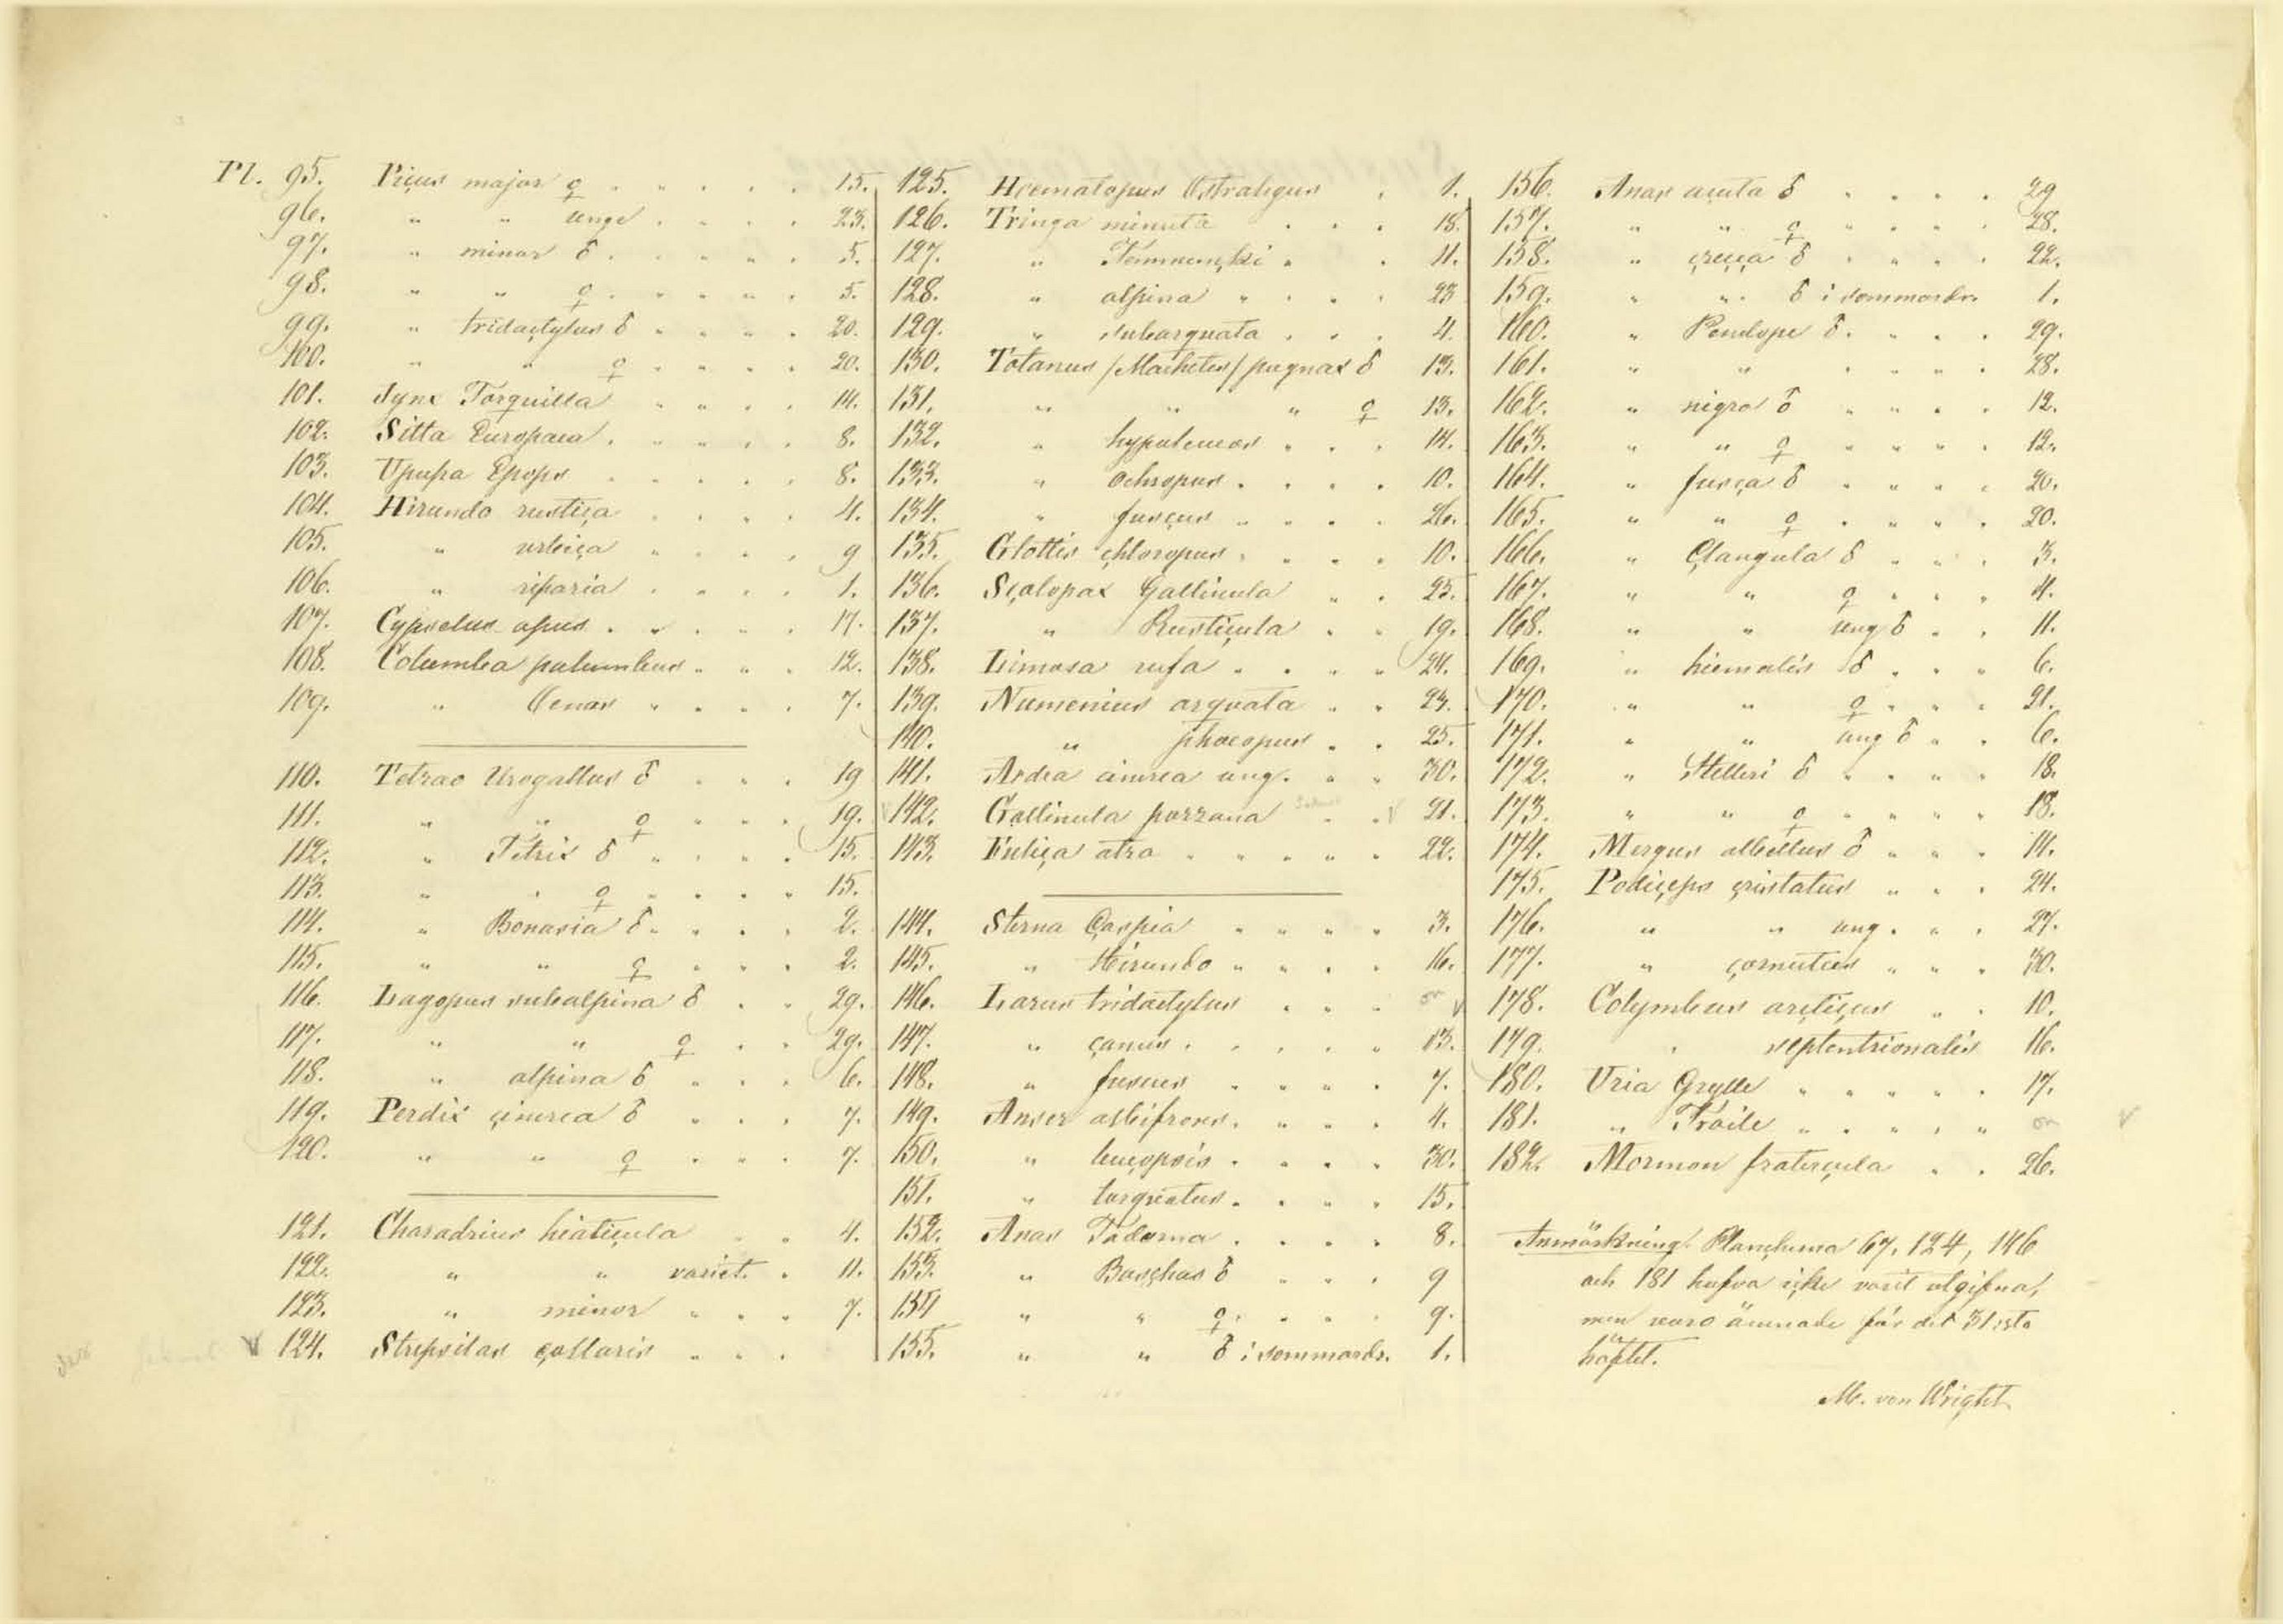 Pl. 95. Picus major ♀ . . . . . . 15.
96. " " unge . . . . 23.
97. " minor ♂ . . . . . . 5.
98. " " ♀ . . . . . . 5.
99. " tridactylus ♂ . . . . . 20.
100. " " ♀ . . . . . 20.
101. Jynx Torquilla . . . . 14.
102. Sitta Europaea . . . . . . 8.
103. Upupa Epops . . . . . . 8.
104. Hirundo rustica . . . . 4.
105. " urbica . . . . 9
106. " riparia . . . . . 1.
107. Cypselus apus . . . . . 17.
108. Columba palumbus . . . 12.
109. " Oenas . . . . 7.
110. Tetrao Urogallus ♂ . . . 19
111. " " ♀ . . . 19.
112. " Tetrix ♂ . . . . 15.
113. " " ♀ . . . . . 15.
114. " Bonasia ♂ . . . . 2.
115. " " ♀ . . . 2.
116. Lagopus subalpina ♂ . . 29.
117. " " ♀ . . 29.
118. " alpina ♂ . . . 6.
119. Perdix cinerea ♂ . . . 7.
120. " " ♀ . . . 7.
121. Charadrius hiaticula . . 4.
122. " " variet. . 11.
123. " minor . . . . 7.
124. Strepsilas collaris . . .
125. Hæmatopus Ostralegus . 1.
126. Tringa minuta . . . 18.
127. " Temmincki . . 11.
128. " alpina . . . . 23
129. " subarquata . . . 4.
130. Totanus /Machetes/ pugnax ♂ 13.
131. " " " ♀ 13.
132. " hypoleucos . . . 14.
133. " ochropus . . . . 10.
134. " fuscus . . . . 26.
135. Glottis chloropus . . . . 10.
136. Scolopax Gallinula . . 25.
137. " Rusticula . . 19.
138. Limosa rufa . . . . 24.
139. Numenius arquata . . 23.
140. " phaeopus . . 25.
141. Ardea cinerea ung. . . 30.
142. Gallinula porzana . . 21.
143. Fulica atra . . . . . 22.
144. Sterna Caspia . . . . 3.
145. " Hirundo . . . . 16.
146. Larus tridactylus . . .
147. " canus . . . . . 13.
148. " fuscus . . . . 7.
149. Anser albifrons . . . . 4.
150. " leucopsis . . . . 30.
151. " torquatus . . . . 15.
152. Anas Tadorna . . . . 8.
153. " Boschas ♂ . . . 9
154 " " ♀ . . . . 9.
155. " " ♂ i sommardr. 1.
156. Anas acuta ♂ . . . . 29
157. " " ♀ . . . . 28.
158. " crecca ♂ . . . . 22.
159. " " ♂ i sommardr. 1.
160. " Penelope ♂ . . . . 29.
161. " " . . . . 28.
162. " nigra ♂ . . . . 12.
163. " " ♀ . . . . 12.
164. " fusca ♂ . . . . 20.
165. " " ♀ . . . . 20.
166. " Clangula ♂ . . . 3.
167. " " ♀ . . . 4.
168. " " ung ♂ . . 11.
169. " hiemalis ♂ . . . 6.
170. " " ♀ . . . 21.
171. " " ung ♂ . . 6.
172. " Stelleri ♂ . . . . 18.
173. " " ♀ . . . . . 18.
174. Mergus albellus ♂ . . . 14.
175. Podiceps cristatus . . . 24.
176. " " ung . . . 27.
177. " cornutus . . . 30.
178. Colymbus arcticus . . 10.
179. " septentrionalis 16.
180. Uria Grylle . . . . . 17.
181. " Troile . . . . . .
182. Mormon fratercula . . 26.
Anmärkning. Plancherna 67, 124, 146
och 181 hafva icke varit utgifna,
men voro ämnade för det 31:sta
häftet.
M. von Wright